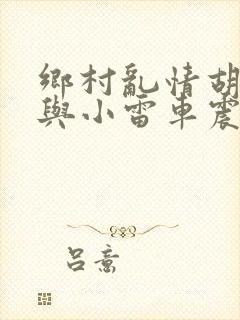 鄉村亂情胡
與小雷車震
呂意